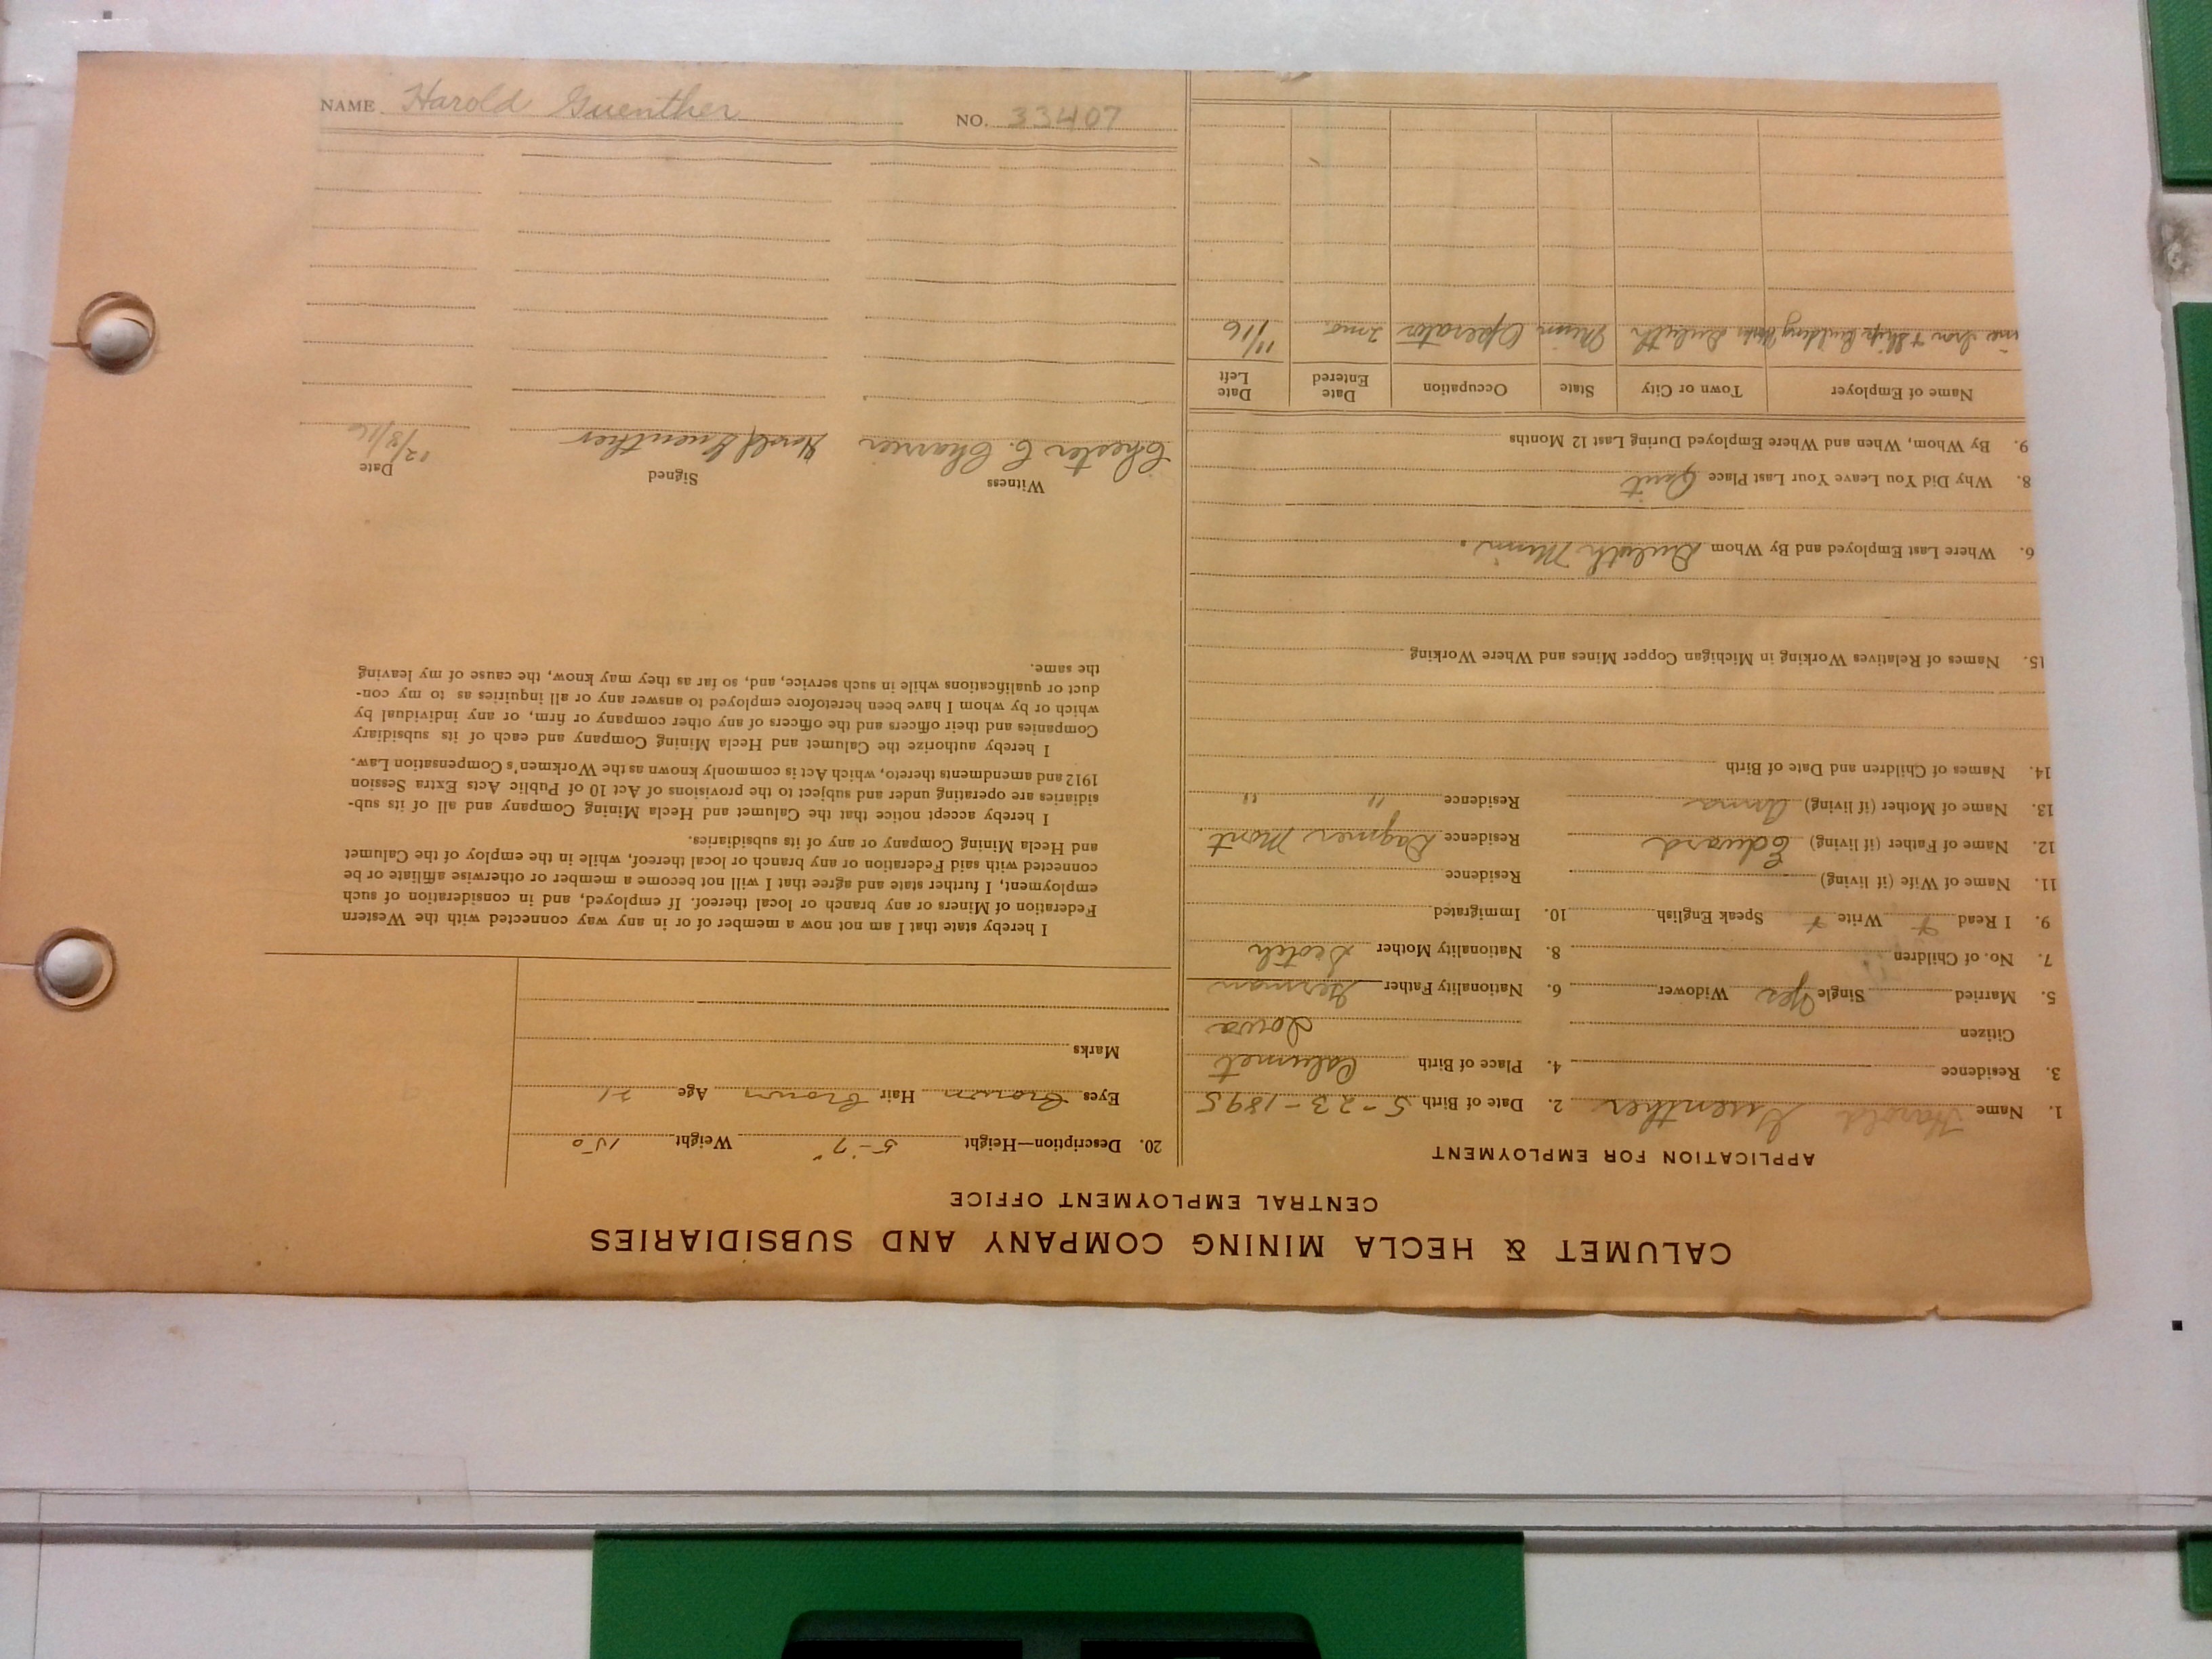 CALUMET & HECLA MINING COMPANY AND SUBSIDIARIES
CENTRAL EMPLOYMENT OFFICE
APPLICATION FOR EMPLOYMENT
1. Name Harold Guenther 2. Date of Birth 5-23-1895
3. Residence 4. Place of Birth Calumet
Citizen Iowa
5. Married Single Yes Widower 6. Nationality Father German
7. No. of Children 8. Nationality Mother Scotch
9. I Read + Write + Speak English 10. Immigrated
11. Name of Wife (if living) Residence
12. Name of Father (if living) Edward Residence Dagmar Mont
13. Name of Mother (if living) Anna Residence " "
14. Names of Children and Date of Birth
15. Names of Relatives Working in Michigan Copper Mines and Where Working
6. Where Last Employed and By Whom Duluth Minn.
8. Why Did You Leave Your Last Place Quit
9. By Whom, When and Where Employed During Last 12 Months
Name of Employer Town or City State Occupation Date Entered Date Left
Iron & Ship Building Duluth Minn Operator 2 mo. 11/16
20. Description—Height 5-7" Weight 150
Eyes Brown Hair Brown Age 21
Marks
I hereby state that I am not now a member of or in any way connected with the Western
Federation of Miners or any branch or local thereof. If employed, and in consideration of such
employment, I further state and agree that I will not become a member or otherwise affiliate or be
connected with said Federation or any branch or local thereof, while in the employ of the Calumet
and Hecla Mining Company or any of its subsidiaries.
I hereby accept notice that the Calumet and Hecla Mining Company and all of its sub-
sidiaries are operating under and subject to the provisions of Act 10 of Public Acts Extra Session
1912 and amendments thereto, which Act is commonly known as the Workmen's Compensation Law.
I hereby authorize the Calumet and Hecla Mining Company and each of its subsidiary
Companies and their officers and the officers of any other company or firm, or any individual by
which or by whom I have been heretofore employed to answer any or all inquiries as to my con-
duct or qualifications while in such service, and, so far as they may know, the cause of my leaving
the same.
Witness Signed Date
Chester C. Harold Guenther 12/8/16
NAME Harold Guenther NO. 33407